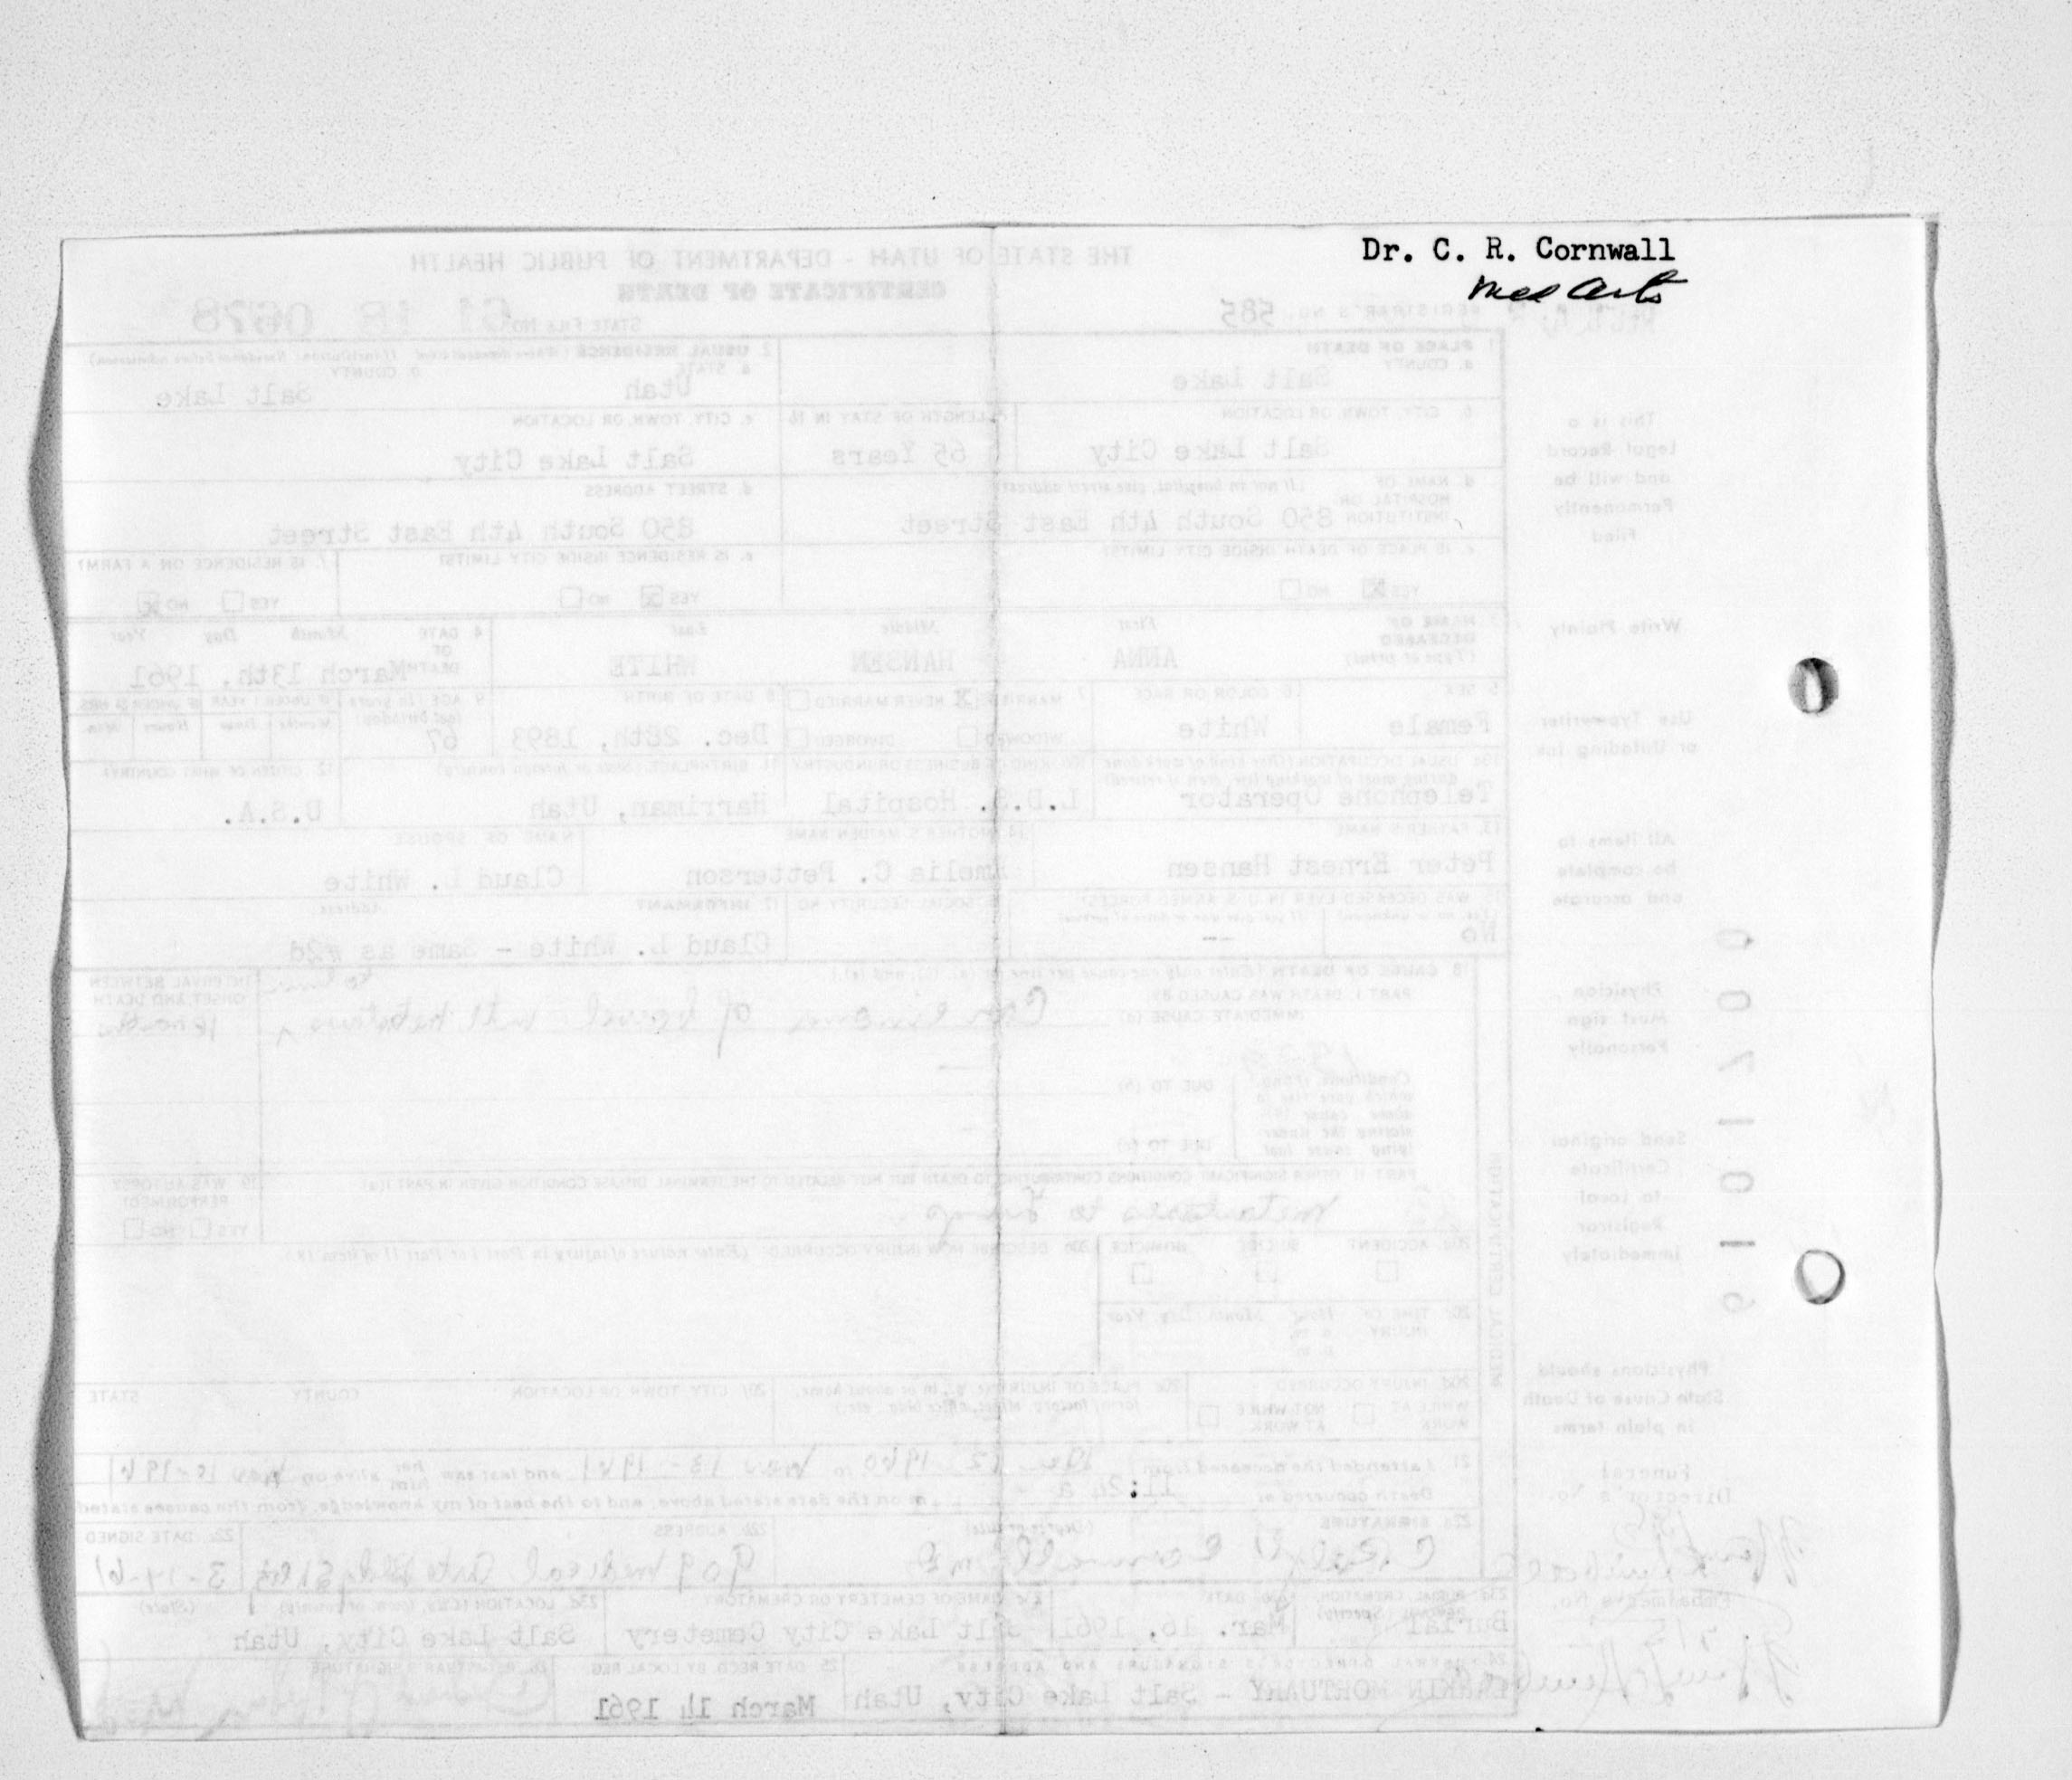 Dr. C. R. Cornwall
Med Arts
THE STATE OF UTAH - DEPARTMENT OF PUBLIC HEALTH
CERTIFICATE OF DEATH
STATE FILE NO. 61 18 0678
REGISTRAR'S NO. 585
1. PLACE OF DEATH
a. COUNTY
Salt Lake
2. USUAL RESIDENCE
a. STATE
Utah
b. COUNTY
Salt Lake
b. CITY, TOWN, OR LOCATION
Salt Lake City
c. LENGTH OF STAY IN 1b
65 Years
c. CITY, TOWN, OR LOCATION
Salt Lake City
d. NAME OF HOSPITAL OR INSTITUTION
(If not in hospital, give street address)
850 South 4th East Street
d. STREET ADDRESS
850 South 4th East Street
e. IS PLACE OF DEATH INSIDE CITY LIMITS?
YES NO
e. IS RESIDENCE INSIDE CITY LIMITS?
YES NO
f. IS RESIDENCE ON A FARM?
YES NO
3. NAME OF DECEASED
(Type or print)
First Middle Last
ANNA HANSEN WHITE
4. DATE OF DEATH
Month Day Year
March 13th, 1961
5. SEX
Female
6. COLOR OR RACE
White
7. MARRIED NEVER MARRIED
WIDOWED DIVORCED
8. DATE OF BIRTH
Dec. 28th, 1893
9. AGE (In years last birthday)
67
10a. USUAL OCCUPATION (Give kind of work done during most of working life, even if retired)
Telephone Operator
10b. KIND OF BUSINESS OR INDUSTRY
L.D.S. Hospital
11. BIRTHPLACE (State or foreign country)
Harriman, Utah
12. CITIZEN OF WHAT COUNTRY?
U.S.A.
13. FATHER'S NAME
Peter Ernest Hansen
14. MOTHER'S MAIDEN NAME
Amelia C. Petterson
NAME OF SPOUSE
Claud L. White
15. WAS DECEASED EVER IN U.S. ARMED FORCES?
No --
16. SOCIAL SECURITY NO.
17. INFORMANT Address
Claud L. White - Same as #2d
18. CAUSE OF DEATH (Enter only one cause per line for (a), (b), and (c).)
PART I. DEATH WAS CAUSED BY:
IMMEDIATE CAUSE (a)
Carcinoma of bowel with
INTERVAL BETWEEN ONSET AND DEATH
DUE TO (b)
DUE TO (c)
PART II. OTHER SIGNIFICANT CONDITIONS CONTRIBUTING TO DEATH BUT NOT RELATED TO THE TERMINAL DISEASE CONDITION GIVEN IN PART I(a)
to lungs
19. WAS AUTOPSY PERFORMED?
YES NO
20a. ACCIDENT SUICIDE HOMICIDE
20b. DESCRIBE HOW INJURY OCCURRED. (Enter nature of injury in Part I or Part II of item 18.)
20c. TIME OF INJURY
Hour Month Day Year
a.m.
p.m.
20d. INJURY OCCURRED
WHILE AT WORK NOT WHILE AT WORK
20e. PLACE OF INJURY (e.g., in or about home, farm, factory, street, office bldg., etc.)
20f. CITY, TOWN, OR LOCATION COUNTY STATE
21. I attended the deceased from
and last saw her him alive on
Death occurred at
m on the date stated above; and to the best of my knowledge, from the causes stated.
22a. SIGNATURE (Degree or title)
22b. ADDRESS
909 Medical Arts Bldg
22c. DATE SIGNED
3-14-61
23a. BURIAL, CREMATION, REMOVAL (Specify)
Burial
23b. DATE
Mar. 16, 1961
23c. NAME OF CEMETERY OR CREMATORY
Salt Lake City Cemetery
23d. LOCATION (City, town, or county) (State)
Salt Lake City, Utah
24. FUNERAL DIRECTOR'S SIGNATURE AND ADDRESS
LARKIN MORTUARY - Salt Lake City, Utah
25. DATE REC'D BY LOCAL REG.
March 14 1961
26. REGISTRAR'S SIGNATURE
MEDICAL CERTIFICATION
This is a
Legal Record
and will be
Permanently
Filed
Write Plainly
Use Typewriter
or Unfading Ink
All items to
be complete
and accurate
Physician
Must sign
Personally
Send original
Certificate
to Local
Registrar
immediately
Physicians should
State Cause of Death
in plain terms
Funeral
Director's No.
Embalmer's No.